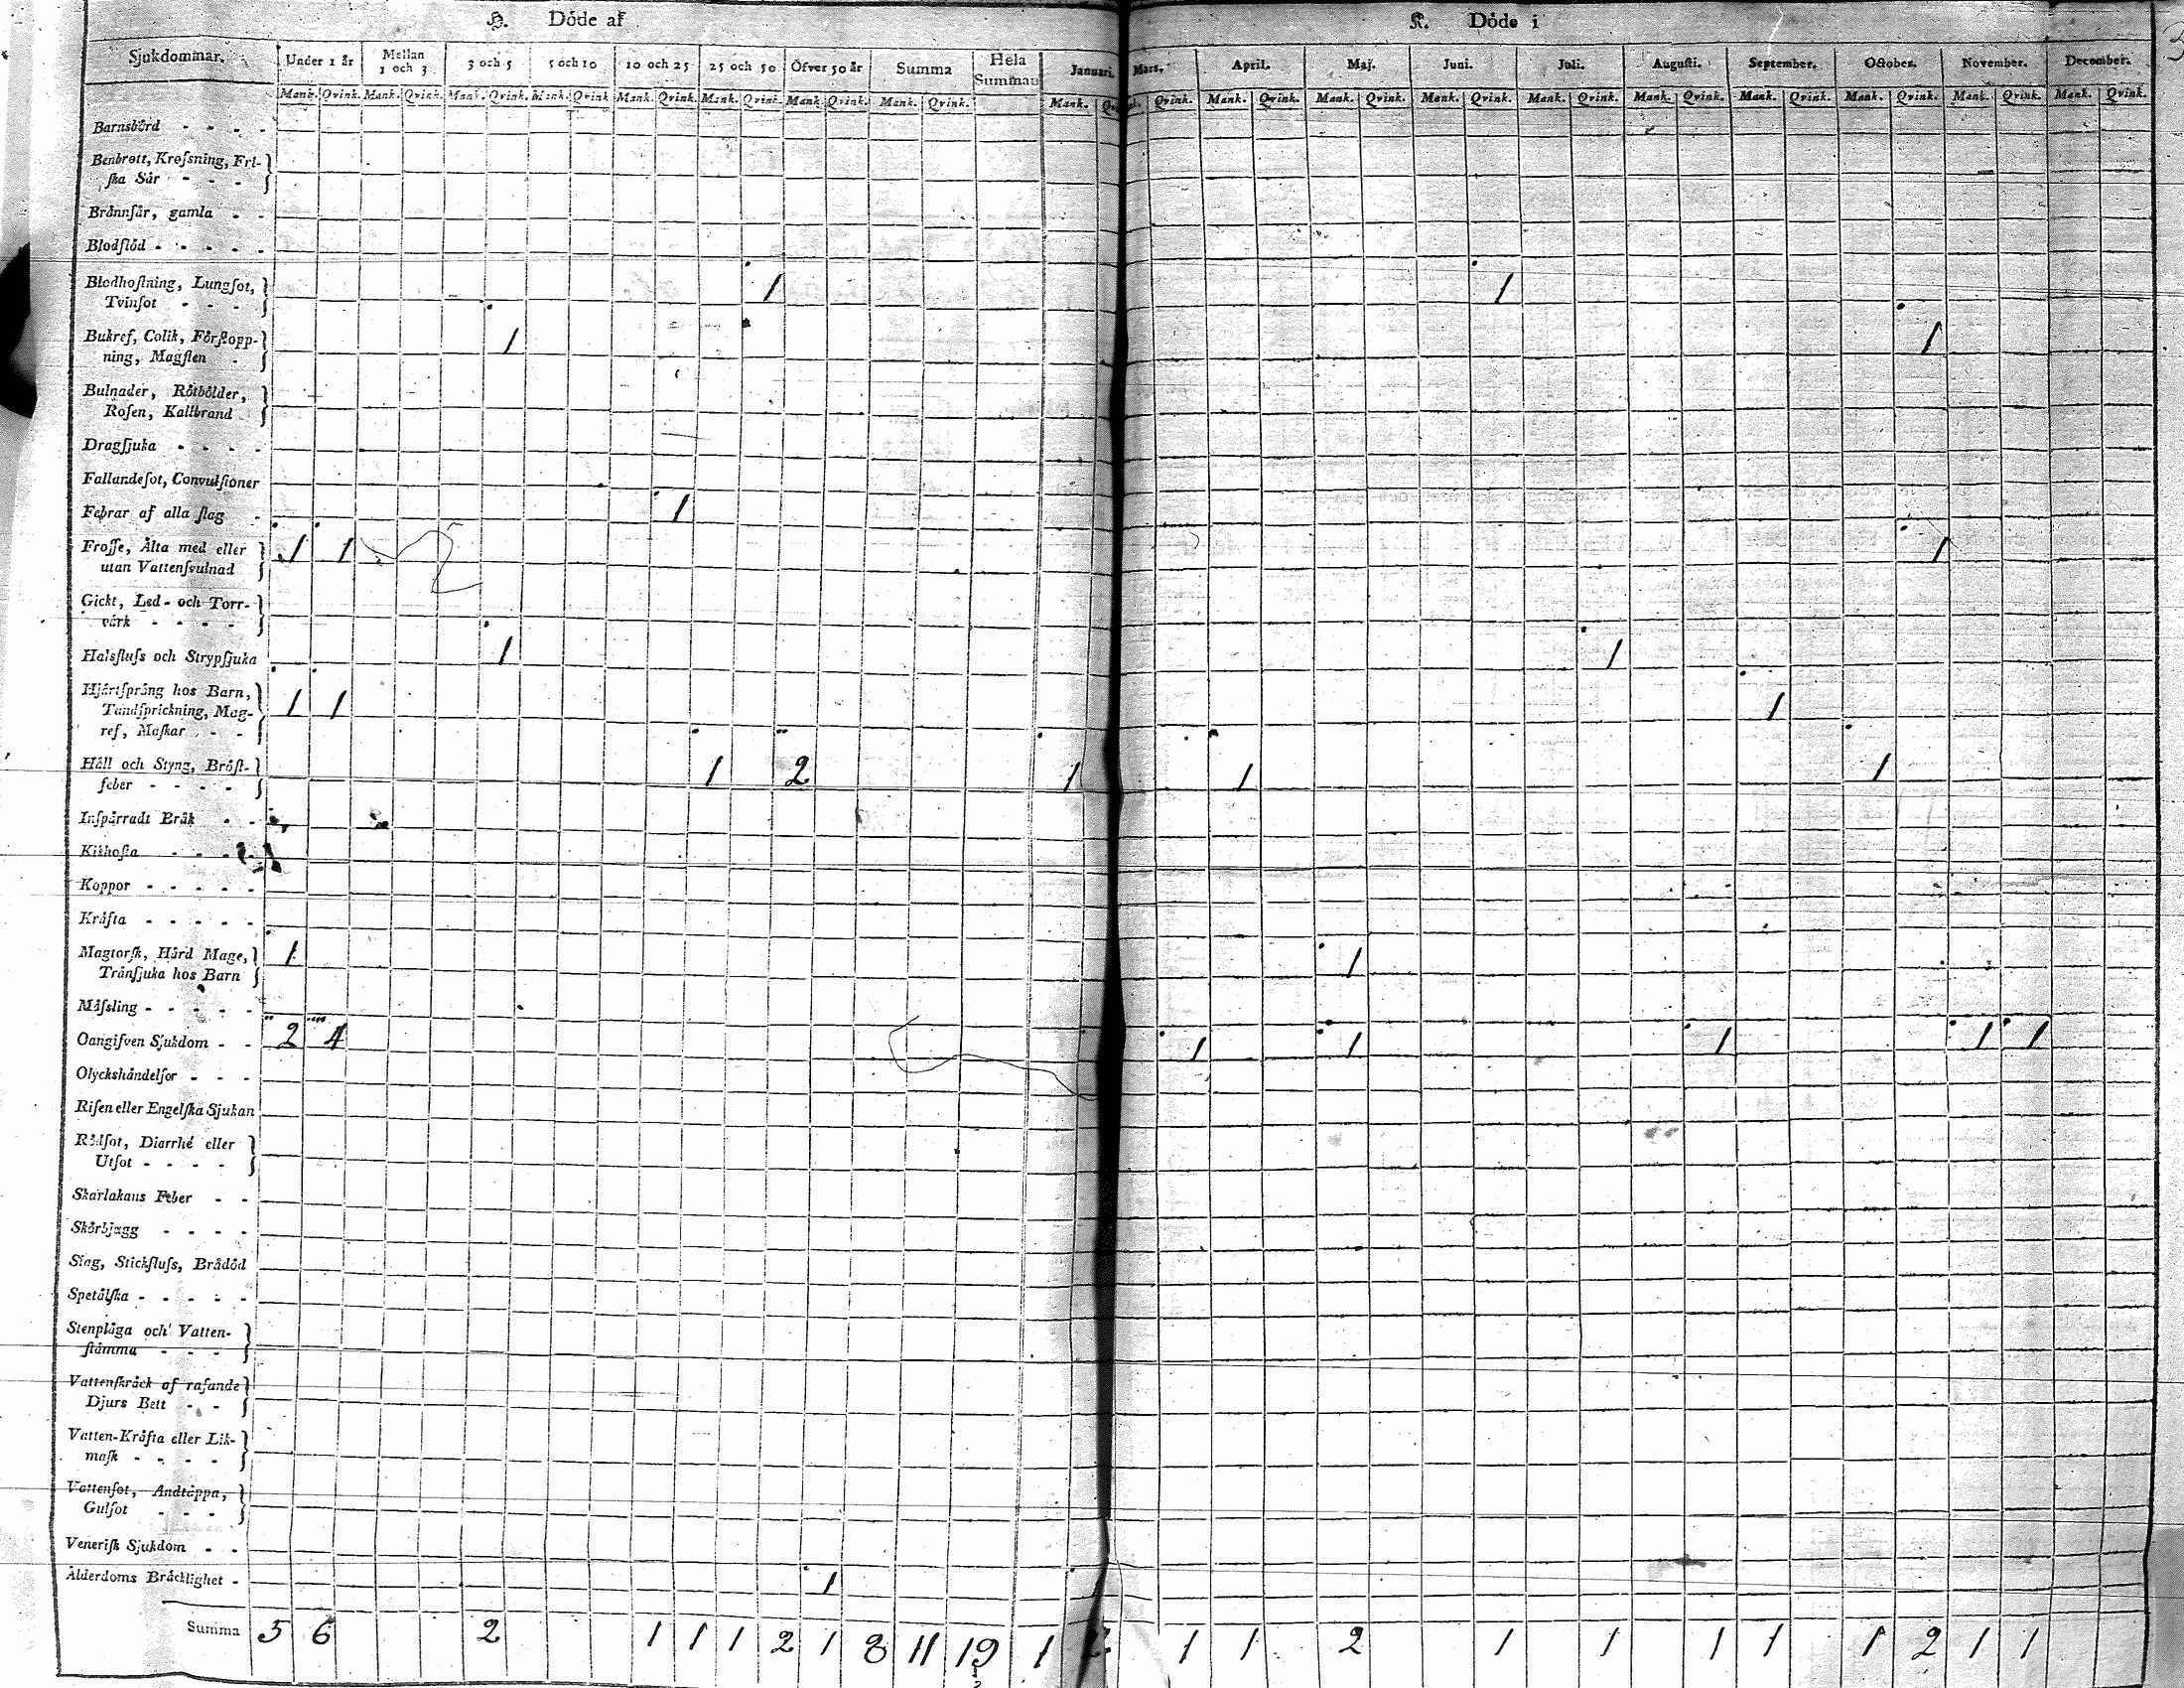 H. Döde af
K. Döde i
Sjukdommar. Under 1 år Mellan 1 och 3 3 och 5 5 och 10 10 och 25 25 och 50 Öfver 50 år Summa Hela Summan Januari. Mars. April. Maj. Juni. Juli. Augusti. September. October. November. December.
Mank. Qvink. Mank. Qvink. Mank. Qvink. Mank. Qvink Mank. Qvink. Mank. Qvink. Mank. Qvink. Mank. Qvink. Mank. Qvink. Mank. Qvink. Mank. Qvink. Mank. Qvink. Mank. Qvink. Mank. Qvink. Mank. Qvink. Mank. Qvink. Mank. Qvink. Mank. Qvink.
Barnsbörd - - - -
Benbrott, Krossning, Fri-
ska Sår - - -
Brännsår, gamla - -
Blodflöd - - - - -
Blodhostning, Lungsot, 1 1
Tvinsot - - -
Bukref, Colik, Förstopp- 1 1
ning, Magsten -
Bulnader, Rötbölder,
Rosen, Kallbrand
Dragsjuka - - - -
Fallandesot, Convulsioner
Febrar af alla slag - 1
Frosse, Älta med eller 1 1 1
utan Vattensvulnad
Gickt, Led- och Torr-
värk - - - -
Halsfluss och Strypsjuka 1 1
Hjärtsprång hos Barn, 1 1 1
Tandsprickning, Mag-
ref, Maskar - -
Håll och Styng, Bröst- 1 2 1 1 1
feber - - - -
Insparradt Bråk - -
Kikhosta - - -
Koppor - - - - -
Kräfta - - - - -
Magtorsk, Hård Mage, 1 1
Trånsjuka hos Barn
Mässling - - - - -
Oangifven Sjukdom - - 2 4 1 1 1 1 1
Olyckshändelser - - -
Risen eller Engelska Sjukan
Rödsot, Diarrhé eller
Utsot - - - -
Skarlakans Feber - -
Skörbjugg - - - -
Slag, Stickfluss, Brådöd
Spetälska - - - - -
Stenplåga och Vatten-
stämma - - -
Vattenskräck af rasande
Djurs Bett - -
Vatten-Kräfta eller Lik-
mask - - - -
Vattensot, Andtäppa,
Gulsot - - -
Venerisk Sjukdom - -
Ålderdoms Bräcklighet - 1
Summa 5 6 2 1 1 1 2 1 8 11 19 1 1 1 2 1 1 1 1 1 2 1 1